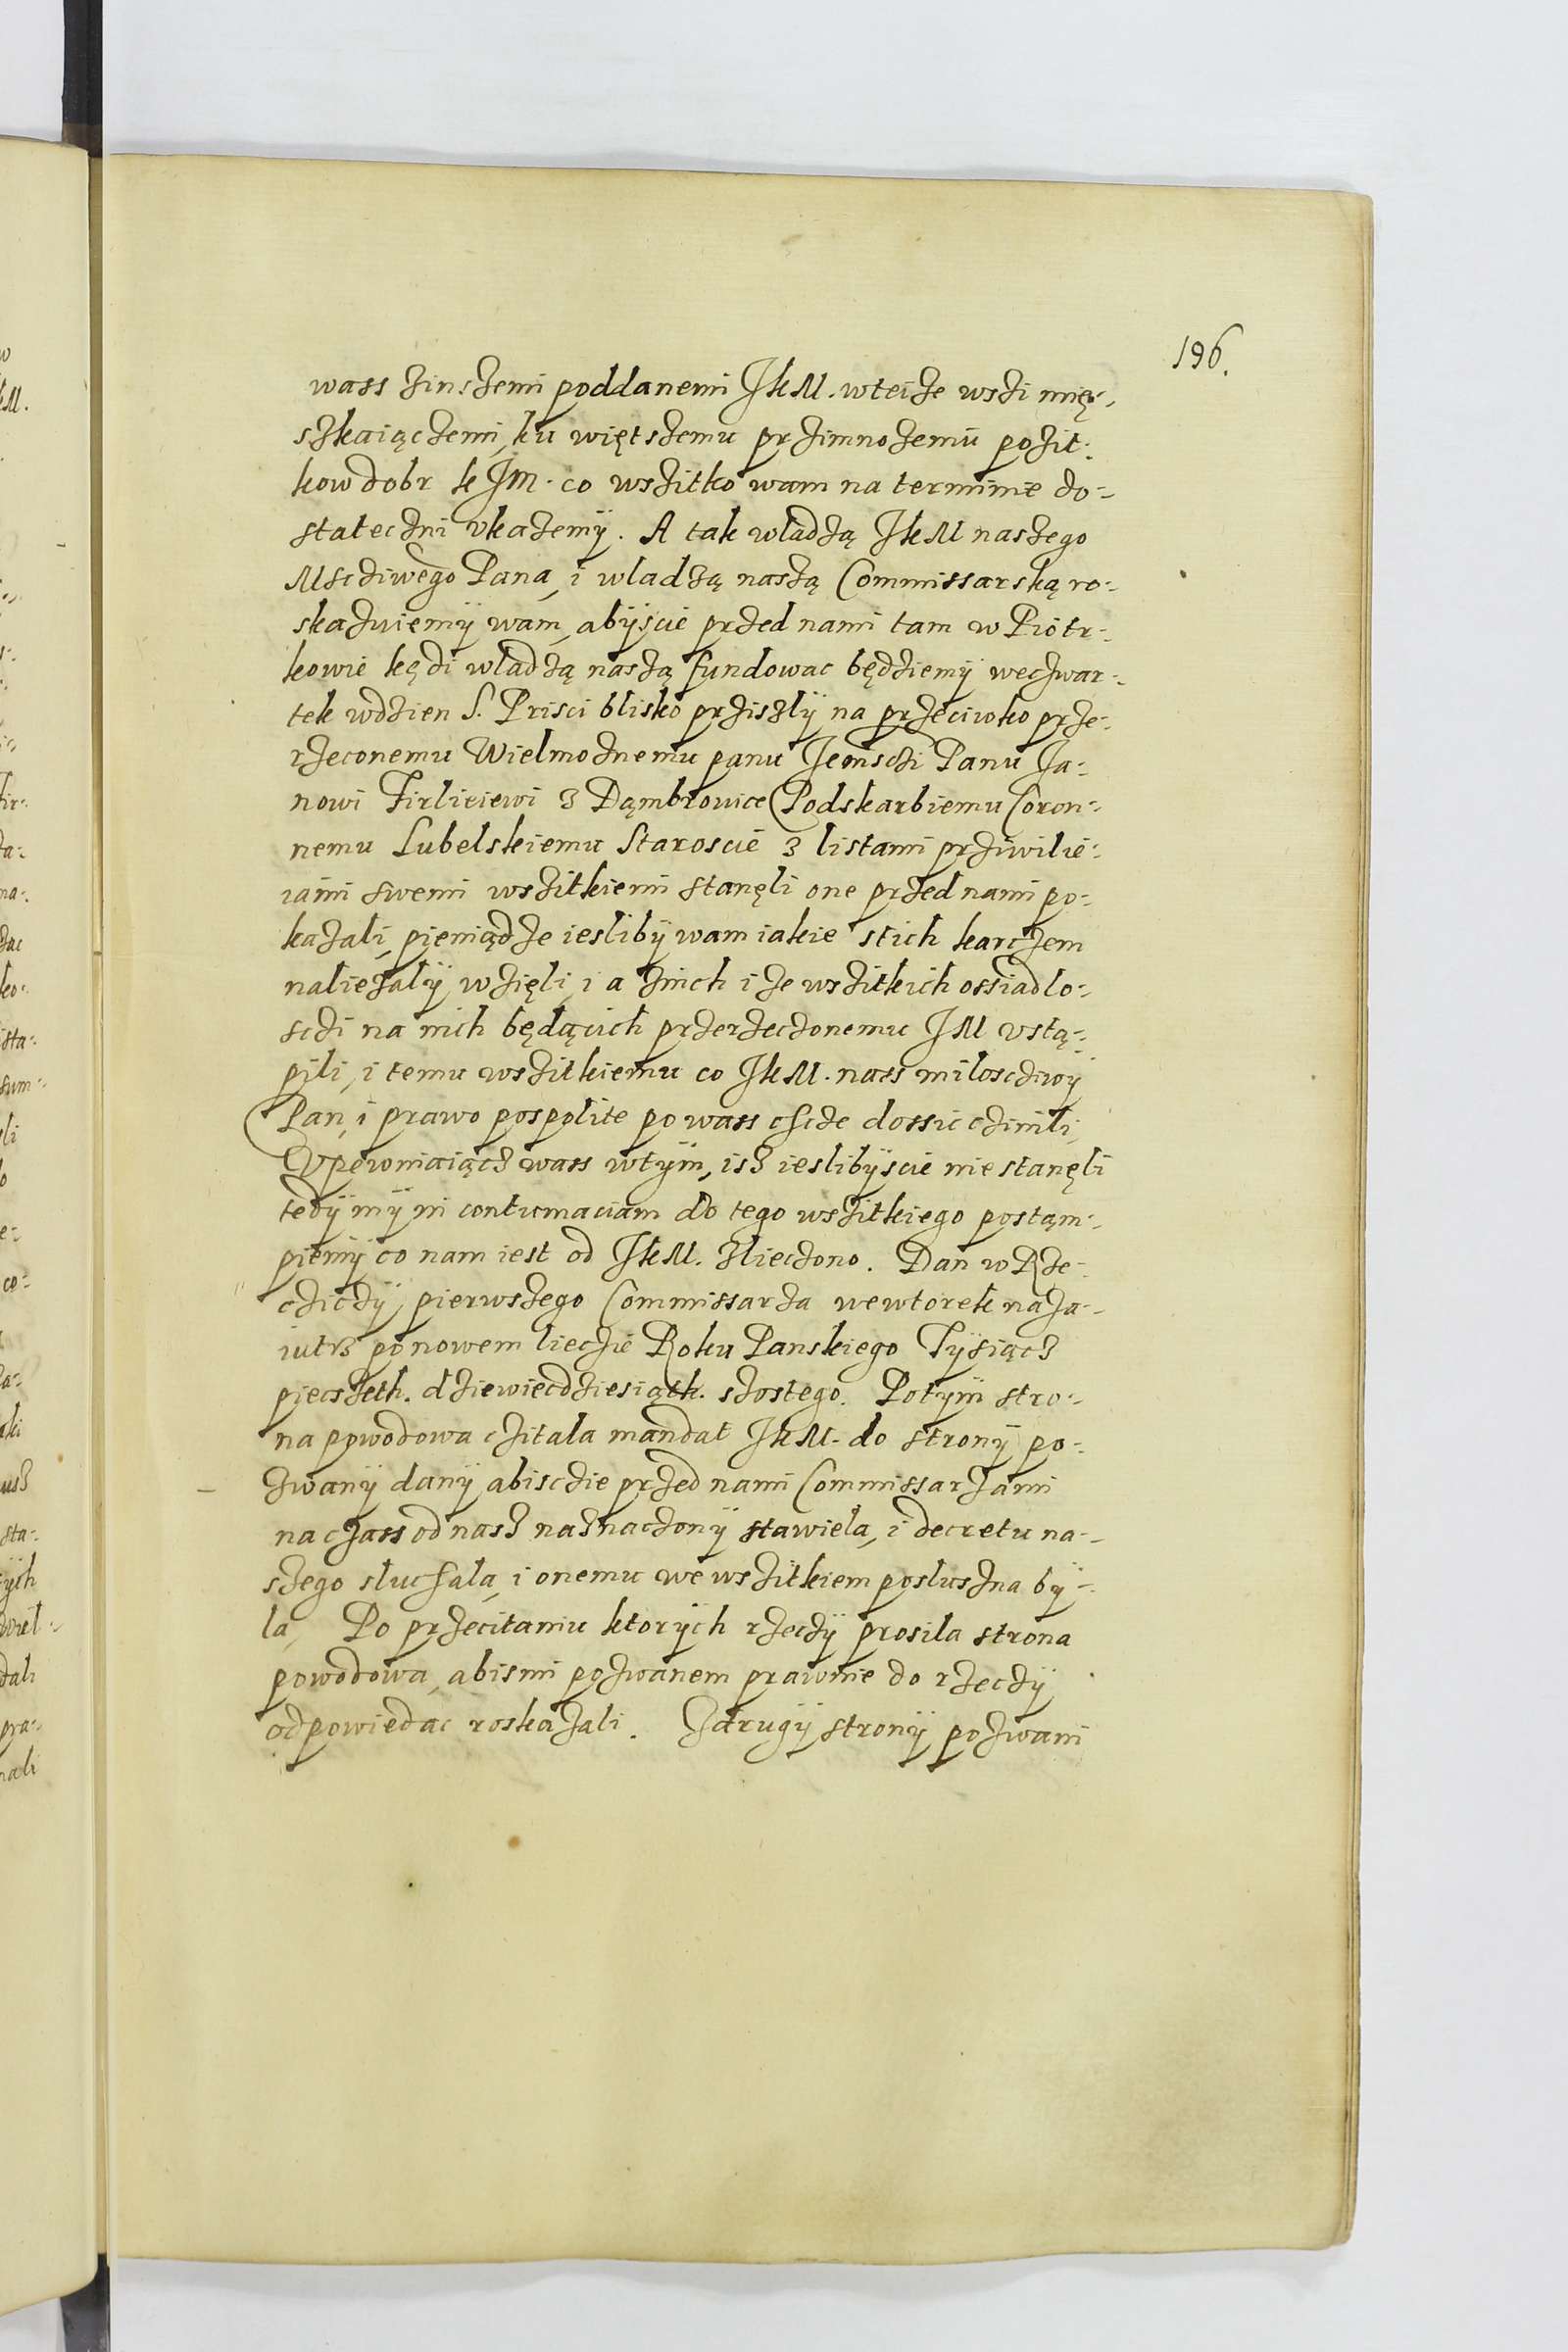 196.
wass zinszemi poddanemi JkM. wteize wszi mię-
szkaiączemi, ku więtszemu przimnozemu pozit:
kow dobr k JM. co wszitko wam na terminie do-
stateczni vkazemÿ. A tak wladzą JkM naszego
Mscziwego Pana, i wladzą naszą Commissarską ro-
skazuiemÿ wam, abÿscie przed nami tam w Piotr-
kowie kędi wladzą naszą fundowac będziemÿ weczwar-
tek wdzien S. Prisci blisko prziszlÿ na przeciwko prze-
rzeconemu Wielmoznemu panu Jemsczi Panu Ja-
nowi Firlieiewi z Dąmbrovice Podskarbiemu Coron-
nemu Lubelskiemu Staroscie z listami przÿwilie-
iami swemi wszitkiemi stanęli one przed nami po-
kazali, pieniądze iesliby wam iakie stich karczem
naliezalÿ wzięli, i a zinich i ze wszitkich ossiadlo-
sczi na nich będących przerzeczonemu JM vstą-
pili, i temu wszitkiemu co JkM. nass miloscziwy
Pan, i prawo pospolite po wass chcze dossic czinili,
Vpewniaiącz wass wtÿm, isz ieslibÿscie nie stanęli
tedÿ mÿ in contumaciam do tego wszitkiego postąm-
piemÿ co nam iest od JkM. zlieczono. Dan w Rze-
cziczÿ pierwszego Commissarza wewtorek naza-
iutrz ponowem liecie Roku Panskiego Tÿsiącz
piecszeth. dziewiecdziesiąth. szostego. Potÿm stro-
na powodowa czitala mandat JkM. do stronÿ po-
zwanÿ danÿ abisczie przed nami Commissarzami
na czass od nasz naznaczonÿ stawiela, i decretu na-
szego sluchala, i onemu we wszitkiem poslusznabÿ-
la, Po przecitaniu ktorÿch rzeczÿ prosila strona
powodowa, abismi pozwanem prawnie do rzeczÿ
odpowiedac roskazali. Zdrugÿ stronÿ pozwani